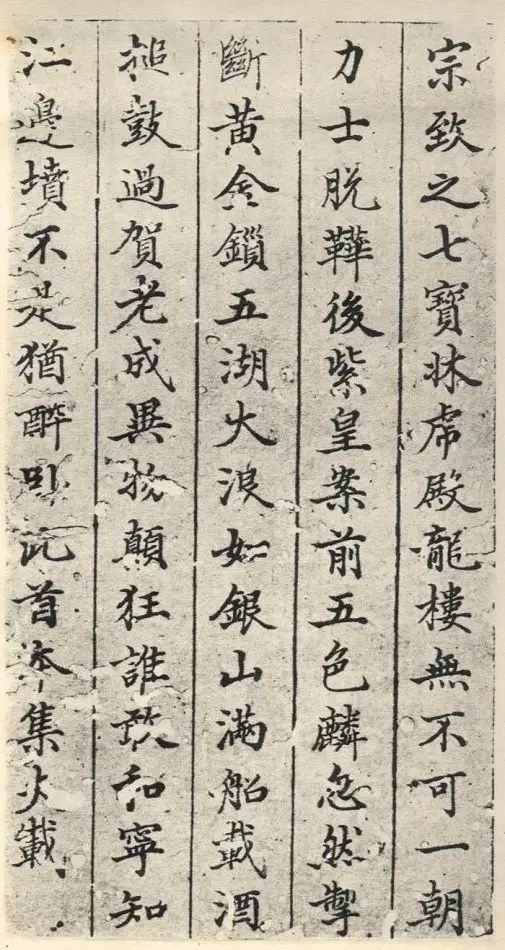 宗致之七寶牀虎殿龍樓無不可一朝
力士脫鞾後紫皇案前五色麟忽然掣
斷黃金鎖五湖大浪如銀山滿船載酒
搥鼓過賀老成異物顛狂誰敢和寧知
江邊墳不是猶醉臥此首本集失載